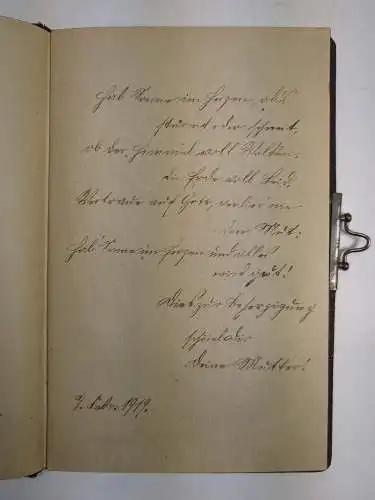 Hab Sonne im Herzen, ob's
stürmt oder schneit,
ob der Himmel voll Wolken,
die Erde voll Leid,
Vertraue auf Gott, verlier' nie
den Mut:
Hab' Sonne im Herzen und alles
wird gut!
Dies zur Beherzigung
schrieb Dir
Deine Mutter!
1919.